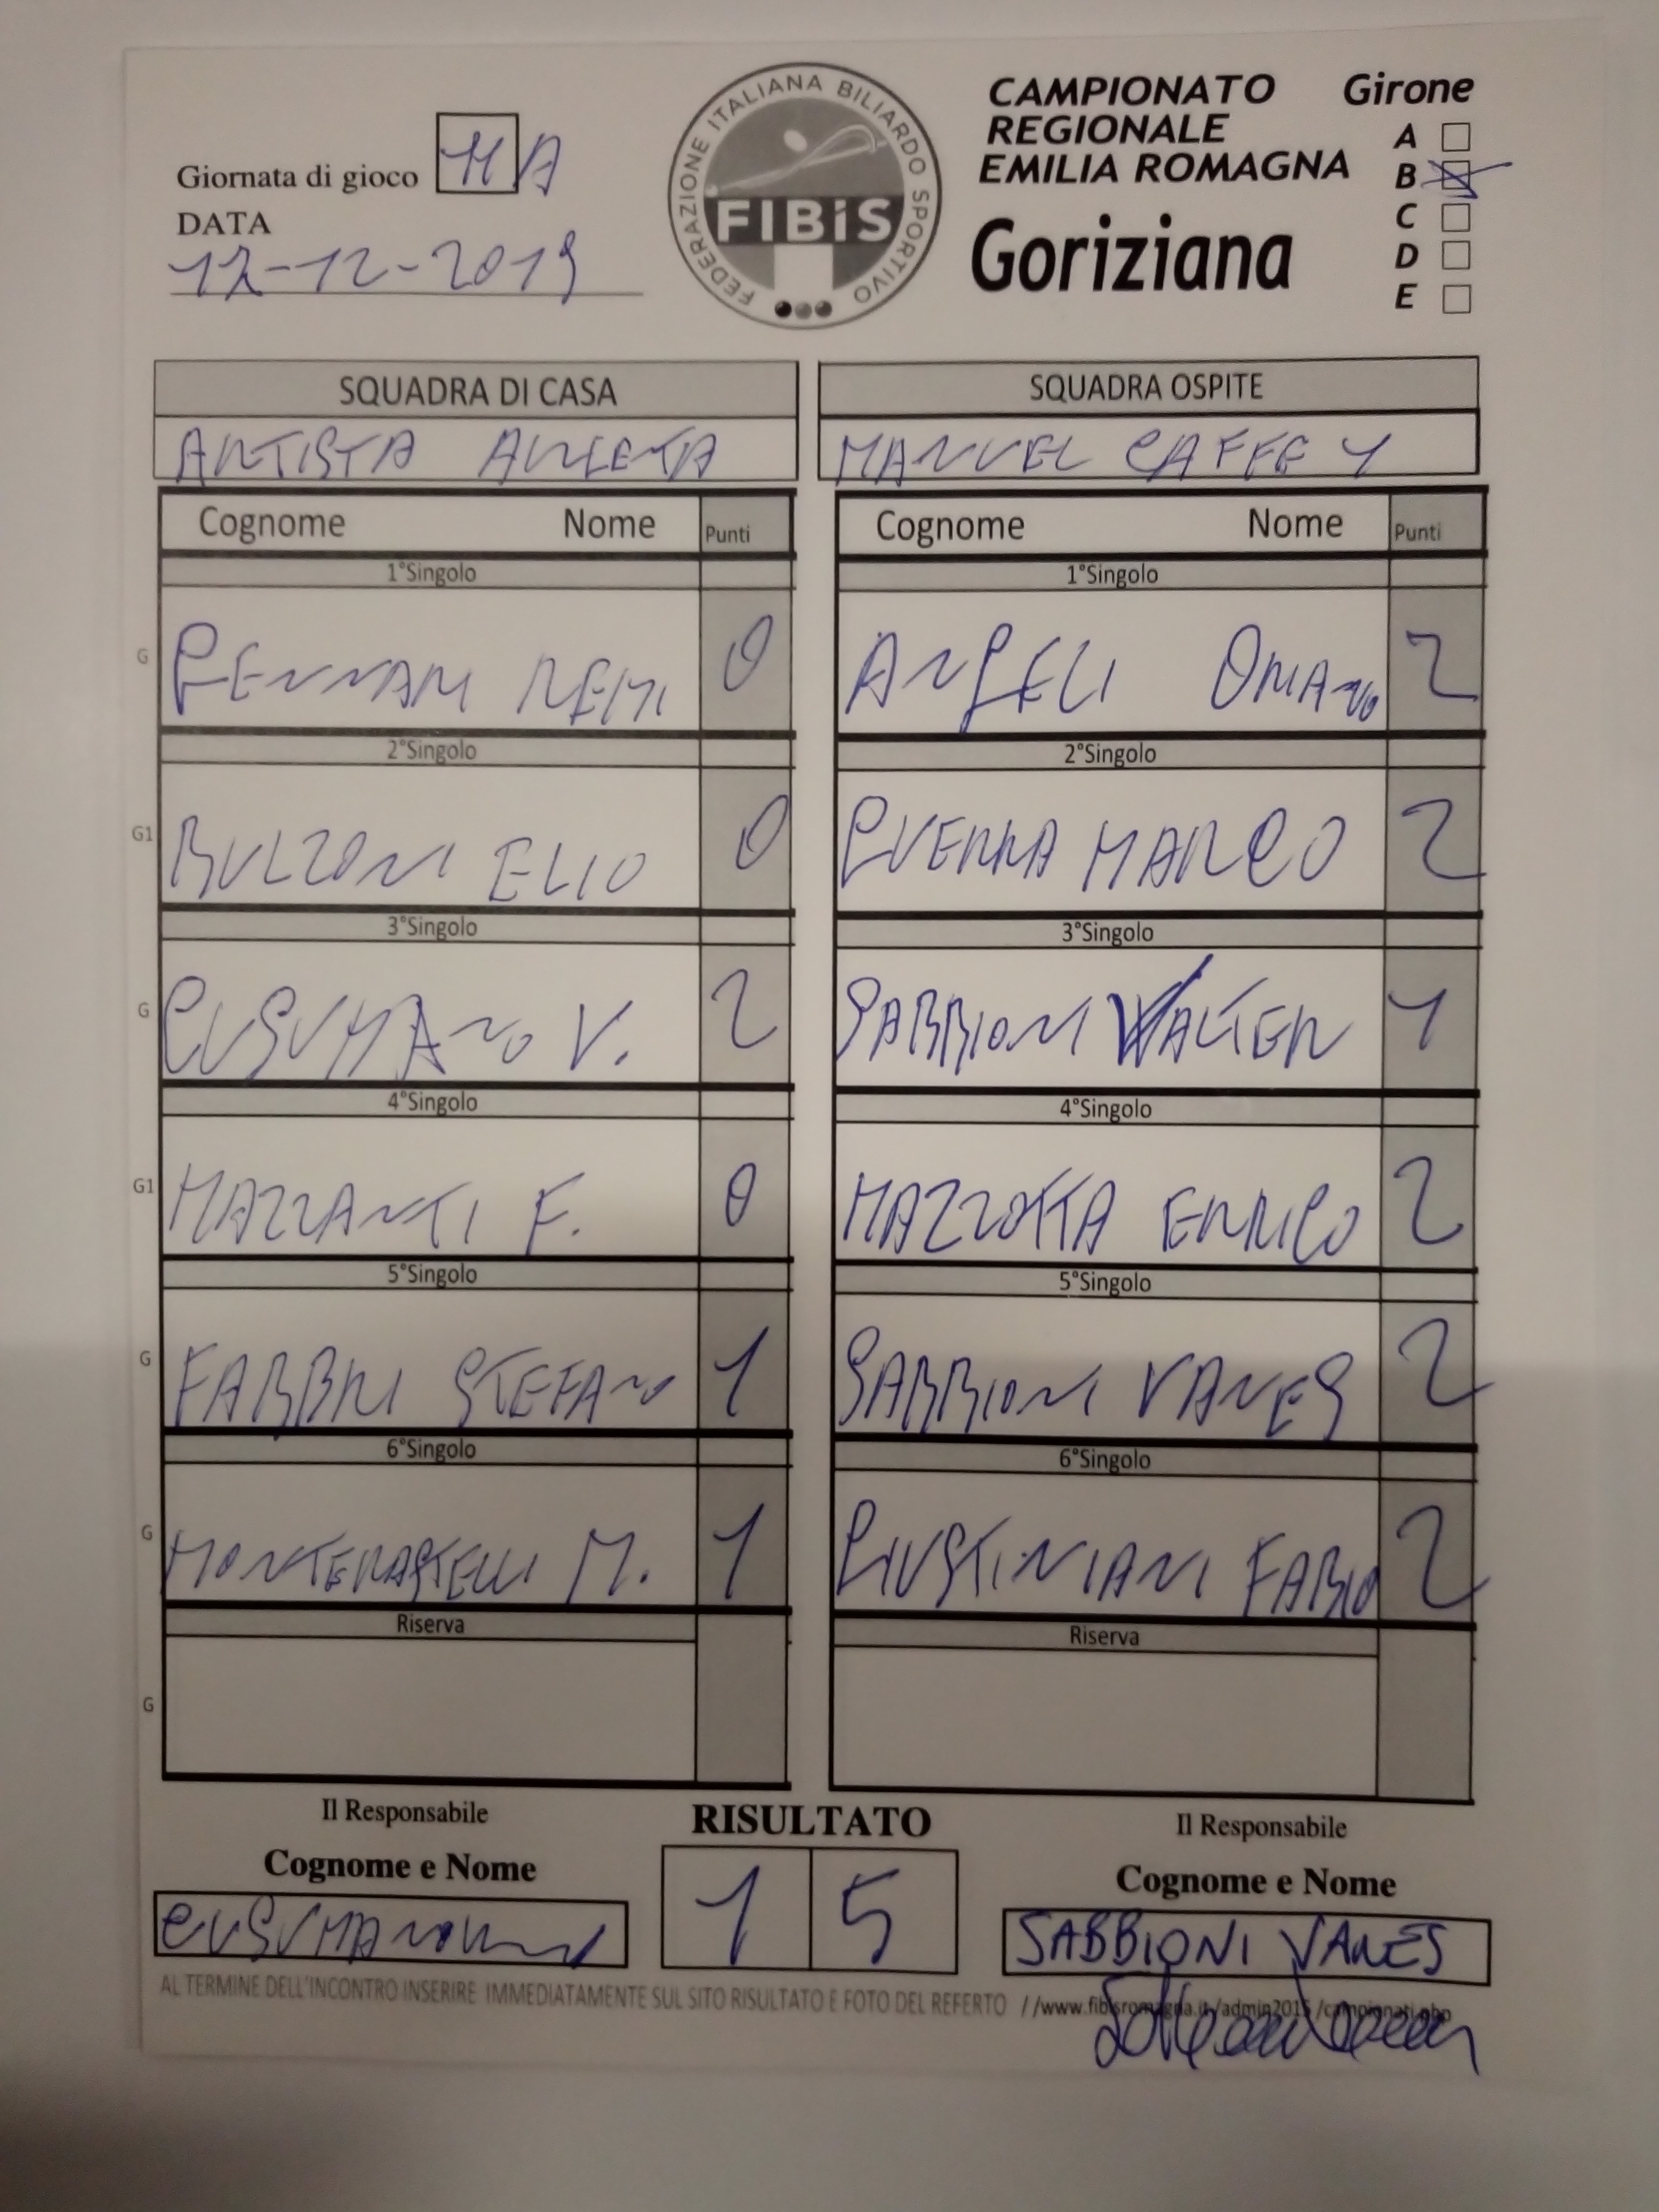 FEDERAZIONE ITALIANA BILIARDO SPORTIVO
FIBiS
CAMPIONATO
REGIONALE
EMILIA ROMAGNA
Goriziana
Girone
A
B
C
D
E
Giornata di gioco 11 A
DATA
12-12-2019
SQUADRA DI CASA
ARTISTA
SQUADRA OSPITE
MANUEL CAFFE 1
Cognome Nome Punti
Cognome Nome Punti
1°Singolo
1°Singolo
G GENNARI REMI 0
ANGELI OMANO 2
2°Singolo
2°Singolo
G1 BULZONI ELIO 0
GUERRA MARCO 2
3°Singolo
3°Singolo
G CUSUMANO V. 2
SABBIONI WALTER 1
4°Singolo
4°Singolo
G1 MAZZANTI F. 0
MAZZOTTA ENRICO 2
5°Singolo
5°Singolo
G FABBRI STEFANO 1
SABBIONI VANES 2
6°Singolo
6°Singolo
G MONTERASTELLI M. 1
GIUSTINIANI FABIO 2
Riserva
Riserva
G
Il Responsabile
RISULTATO
Il Responsabile
Cognome e Nome
Cognome e Nome
CUSUMANO
1 5
SABBIONI VANES
AL TERMINE DELL'INCONTRO INSERIRE IMMEDIATAMENTE SUL SITO RISULTATO E FOTO DEL REFERTO //www.fibisromagna.it/admin2015/campionati.php